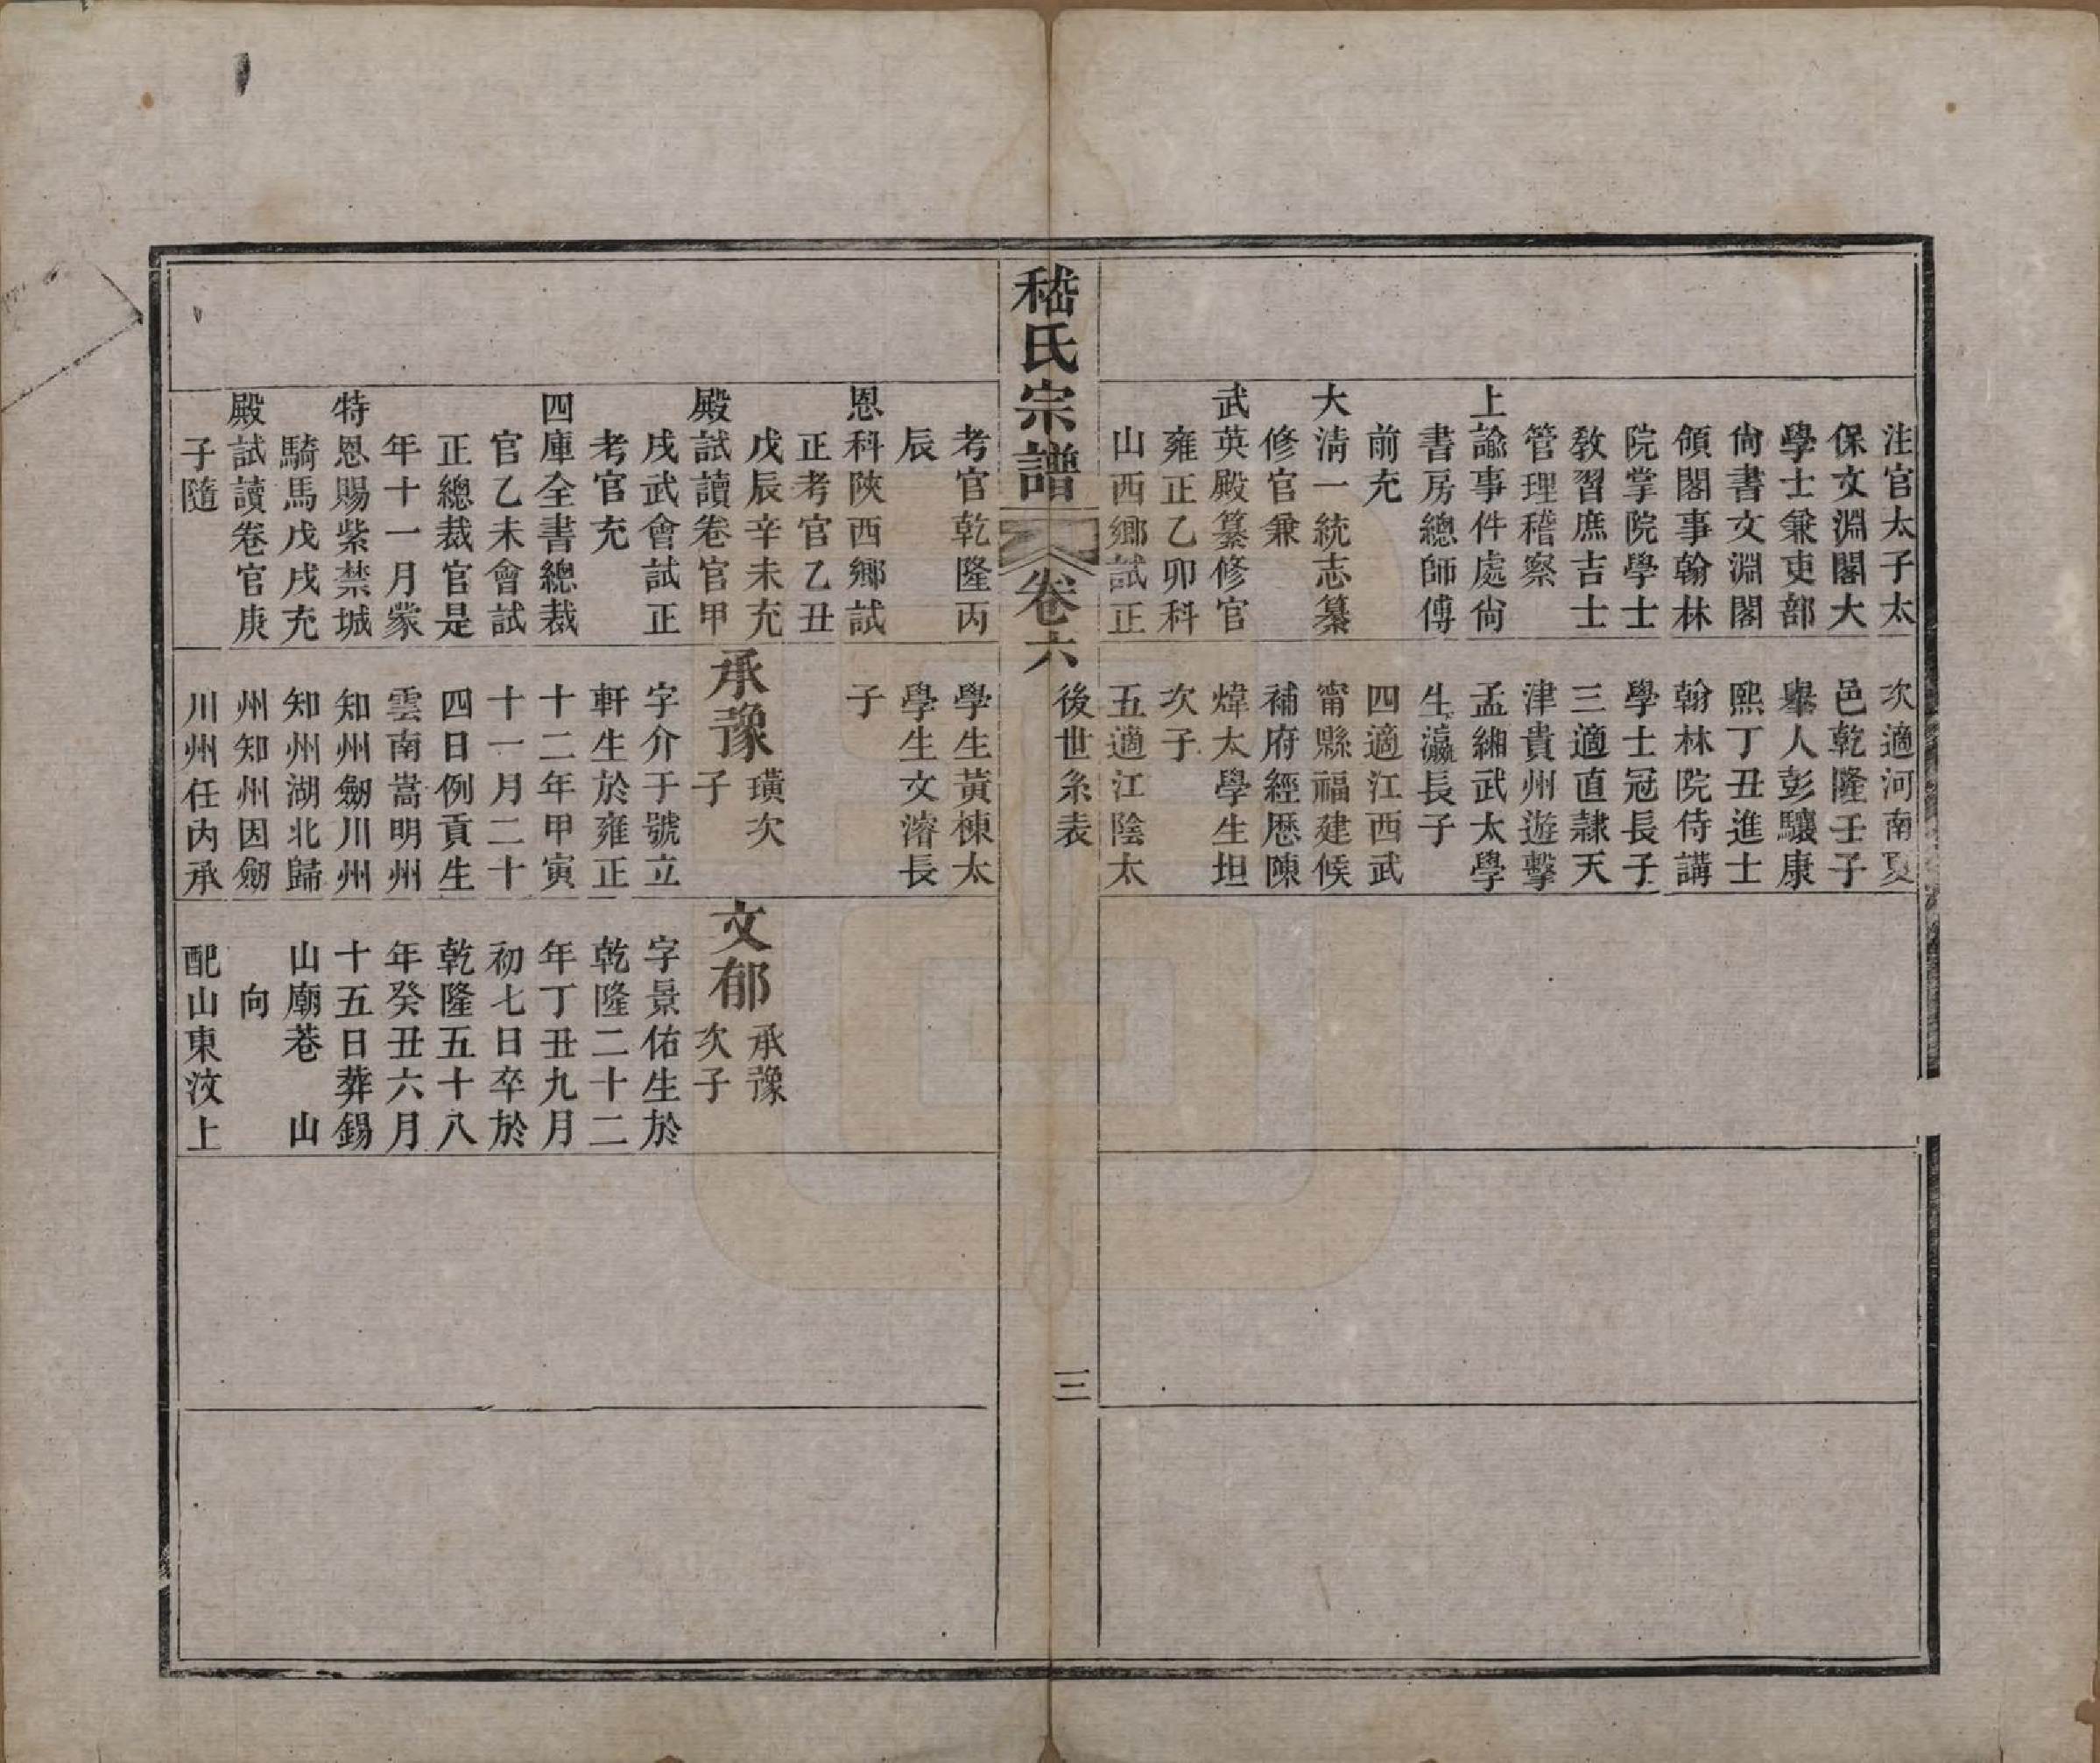 注官太子太
保文淵閣大
學士兼吏部
尙書文淵閣
領閣事翰林
院掌院學士
敎習庶吉士
管理稽察
上諭事件處尙
書房總師傅
前充
大淸一統志纂
修官兼
武英殿纂修官
雍正乙卯科
山西鄉試正
次適河南夏
邑乾隆壬子
舉人彭驤康
熙丁丑進士
翰林院侍講
學士冠長子
三適直隸天
津貴州遊擊
孟緗武太學
生瀛長子
四適江西武
甯縣福建候
補府經歷陳
煒太學生坦
次子
五適江陰太
嵇氏宗譜
卷六
後世系表
三
考官乾隆丙
辰
恩科陝西鄉試
正考官乙丑
戊辰辛未充
殿試讀卷官甲
戌武會試正
考官充
四庫全書總裁
官乙未會試
正總裁官是
年十一月蒙
特恩賜紫禁城
騎馬戊戌充
殿試讀卷官庚
子隨
學生黃棟太
學生文濬長
子
承豫
璜次
子
字介于號立
軒生於雍正
十二年甲寅
十一月二十
四日例貢生
雲南嵩明州
知州劒川州
知州湖北歸
州知州因劒
川州任內承
文郁
承豫
次子
字景佑生於
乾隆二十二
年丁丑九月
初七日卒於
乾隆五十八
年癸丑六月
十五日葬錫
山廟巷 山
向
配山東汶上